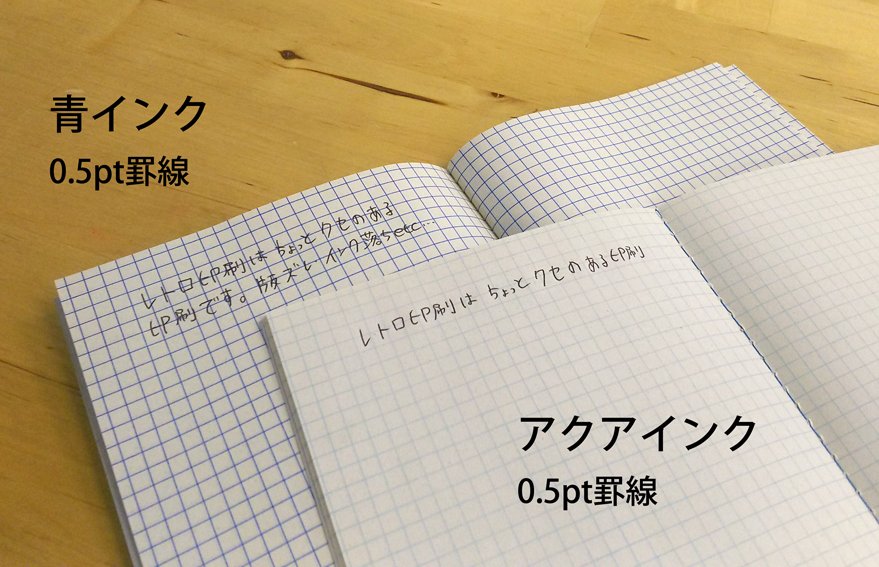 青インク
0.5pt罫線
レトロ印刷は ちょっとクセのある
印刷です。版ズレーインク落ちetc…
レトロ印刷は ちょっとクセのある印刷
アクアインク
0.5pt罫線